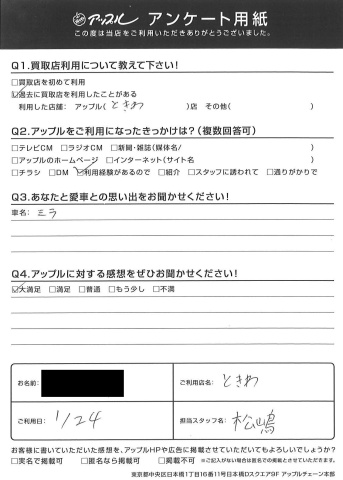 アップル アンケート用紙
この度は当店をご利用いただきありがとうございました。
Q1.買取店利用について教えて下さい!
□買取店を初めて利用
☑過去に買取店を利用したことがある
利用した店舗: アップル( ときわ )店 その他( )
Q2.アップルをご利用になったきっかけは?(複数回答可)
□テレビCM □ラジオCM □新聞・雑誌(媒体名/ )
□アップルのホームページ □インターネット(サイト名 )
□チラシ □DM ☑利用経験があるので □紹介 □スタッフに誘われて □通りがかりで
Q3.あなたと愛車との思い出をお聞かせください!
車名: ミラ
Q4.アップルに対する感想をぜひお聞かせください!
☑大満足 □満足 □普通 □もう少し □不満
お名前:
ご利用店名: ときわ
ご利用日: 1/24
担当スタッフ名: 松嶋
お客様に書いていただいた感想を、アップルHPや広告に掲載させていただいてもよろしいでしょうか?
□実名で掲載可 □匿名なら掲載可 □掲載不可 ※ご記入がない場合は匿名での掲載とさせていただきます。
東京都中央区日本橋1丁目16番11号日本橋Dスクエア9F アップルチェーン本部